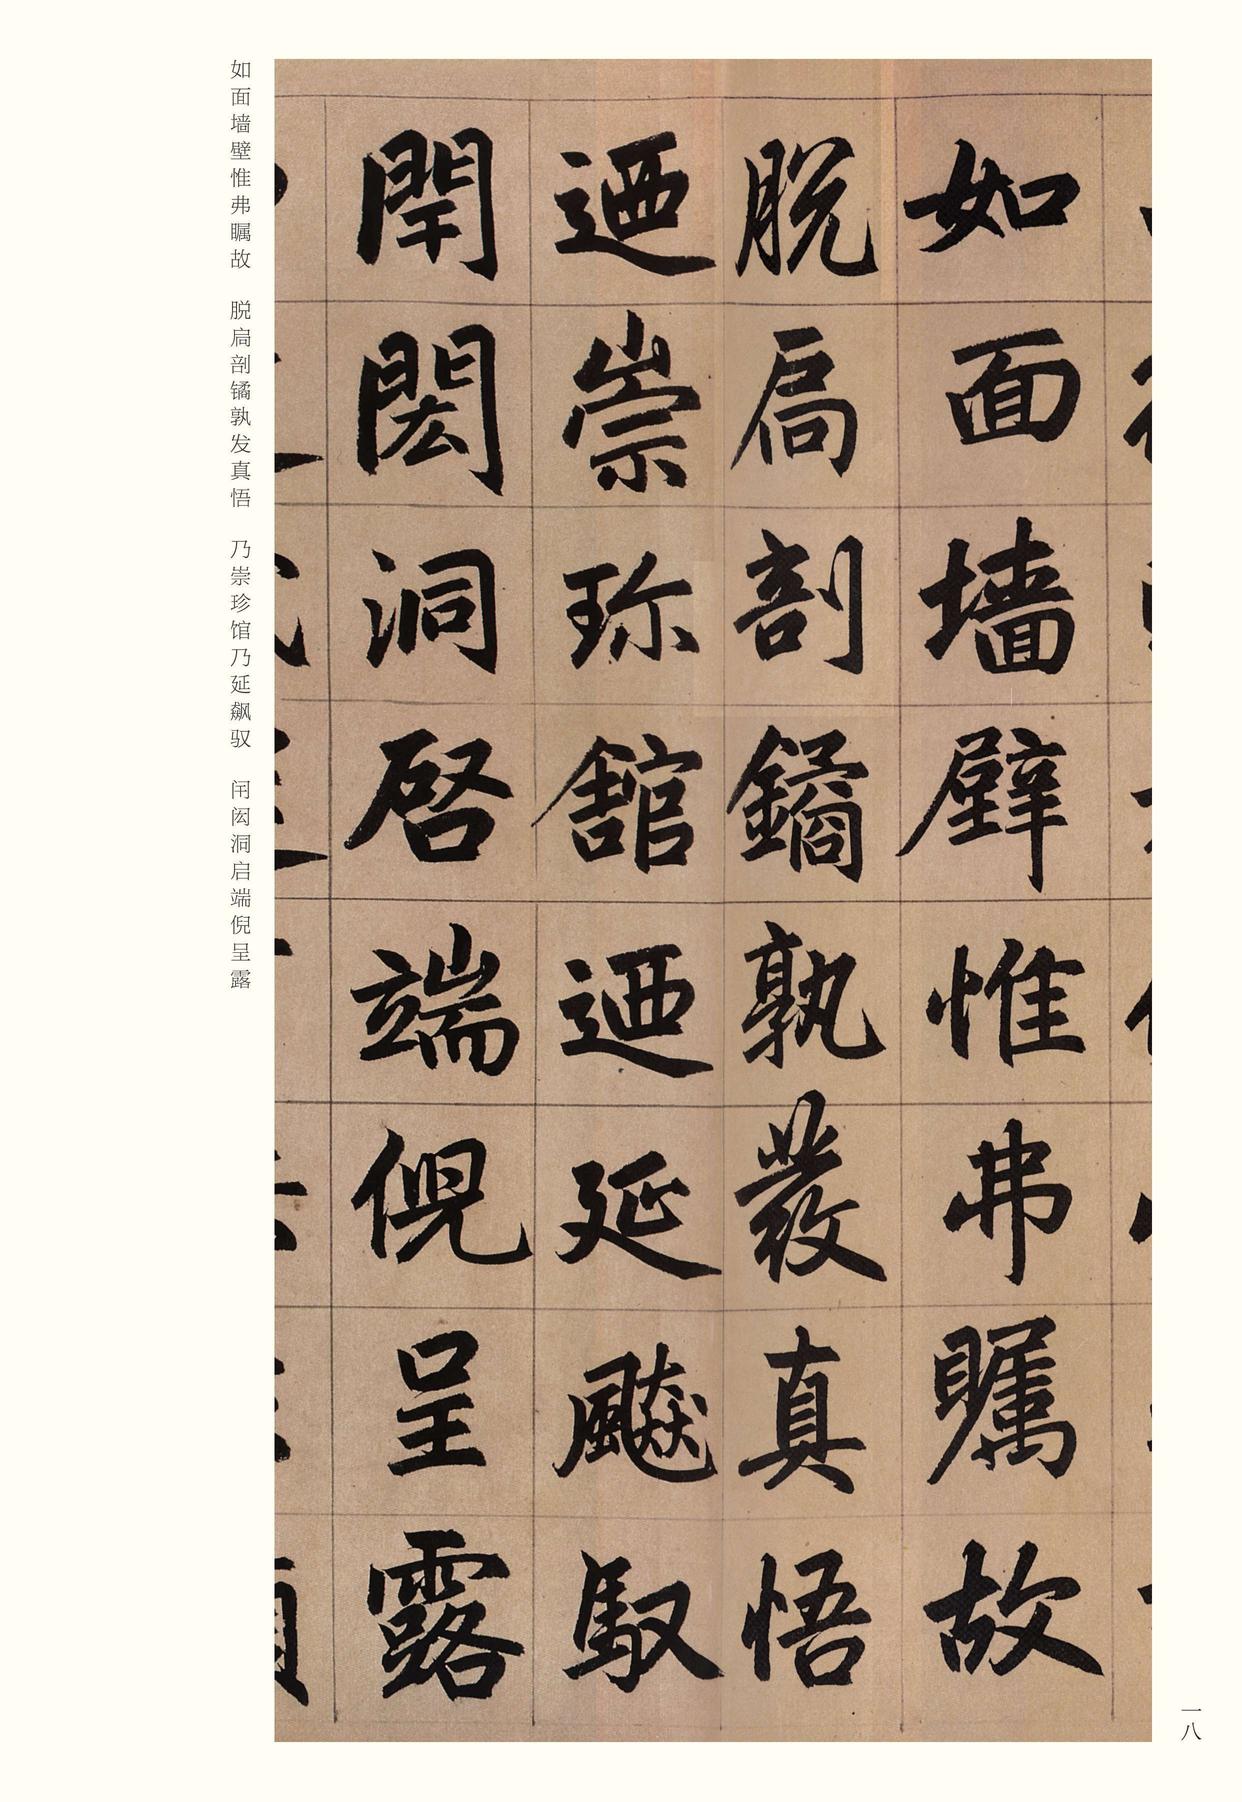 如面墻壁惟弗矚故
脱扃剖鐍孰發真悟
迺崇珎館迺延飈馭
閈閎洞啓端倪呈露
如面墙壁惟弗瞩故 脱扃剖鐍孰发真悟 乃崇珍馆乃延飙驭 闬闳洞启端倪呈露
一八